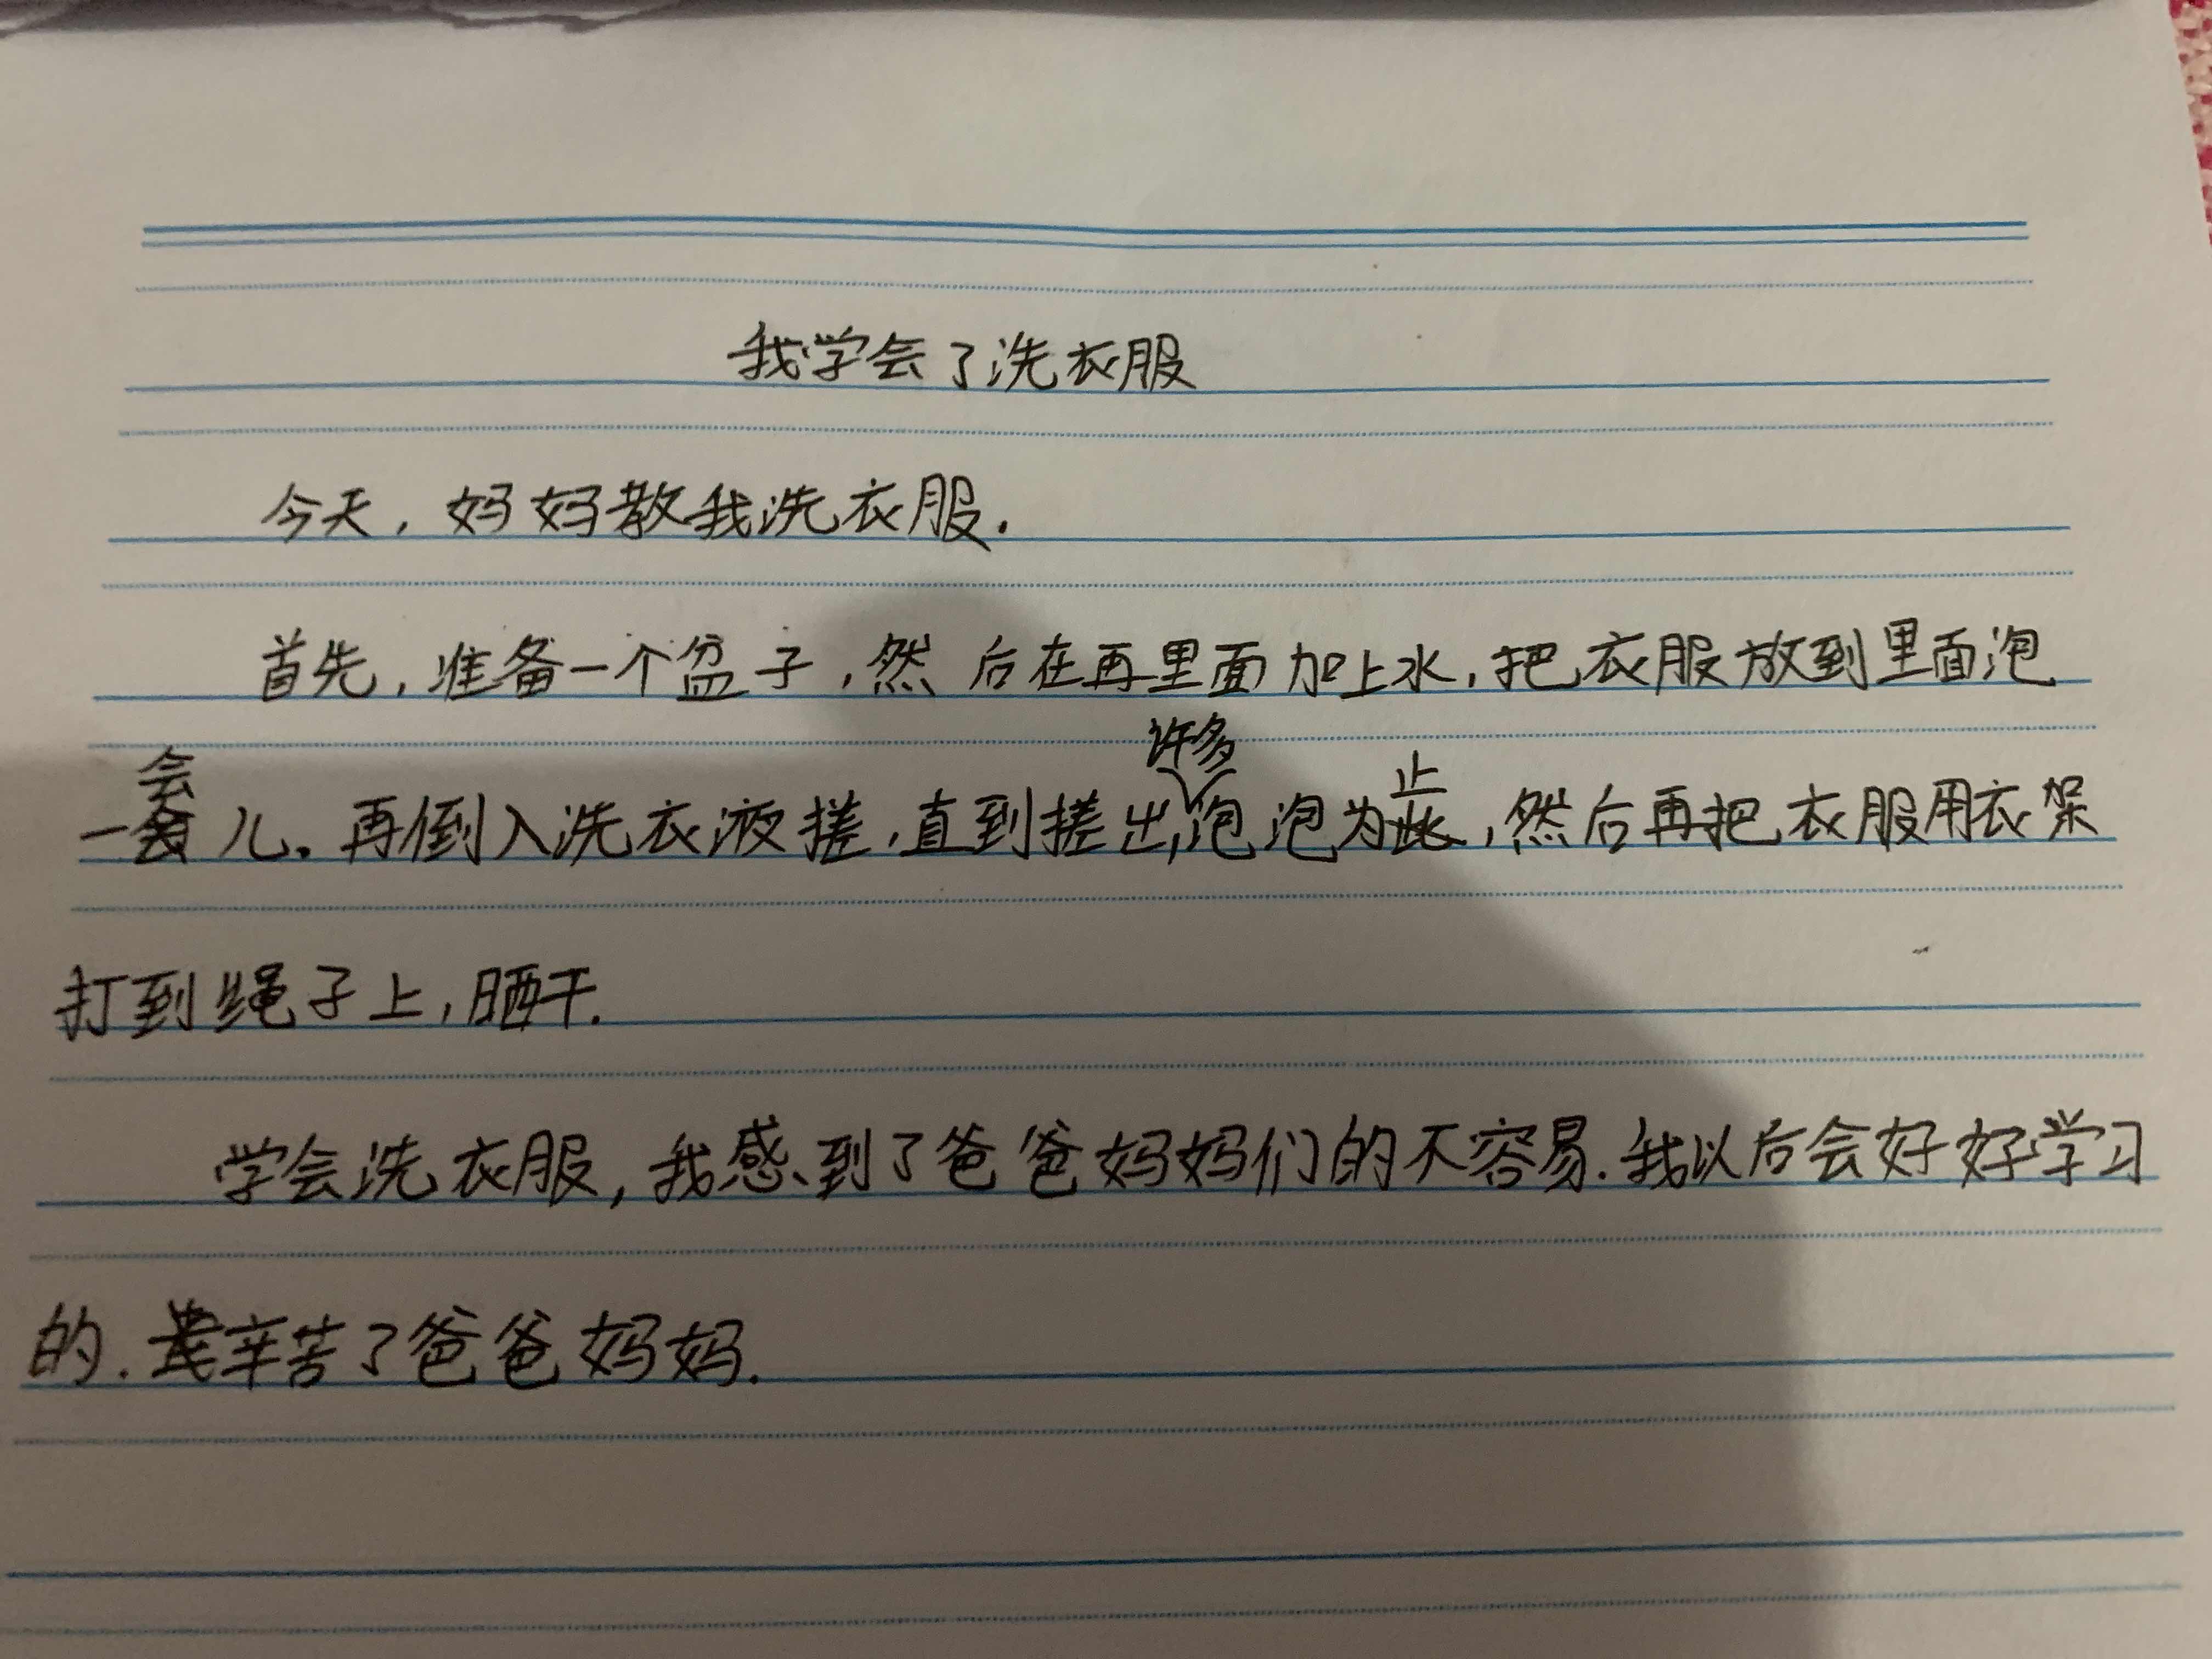 我学会了洗衣服
今天，妈妈教我洗衣服.
首先，准备一个盆子，然后在再里面加上水，把衣服放到里面泡
一会儿。再倒入洗衣液搓，直到搓出许多泡泡为止，然后再把衣服用衣架
打到绳子上，晒干.
学会洗衣服，我感到了爸爸妈妈们的不容易.我以后会好好学习
的.辛苦了爸爸妈妈.